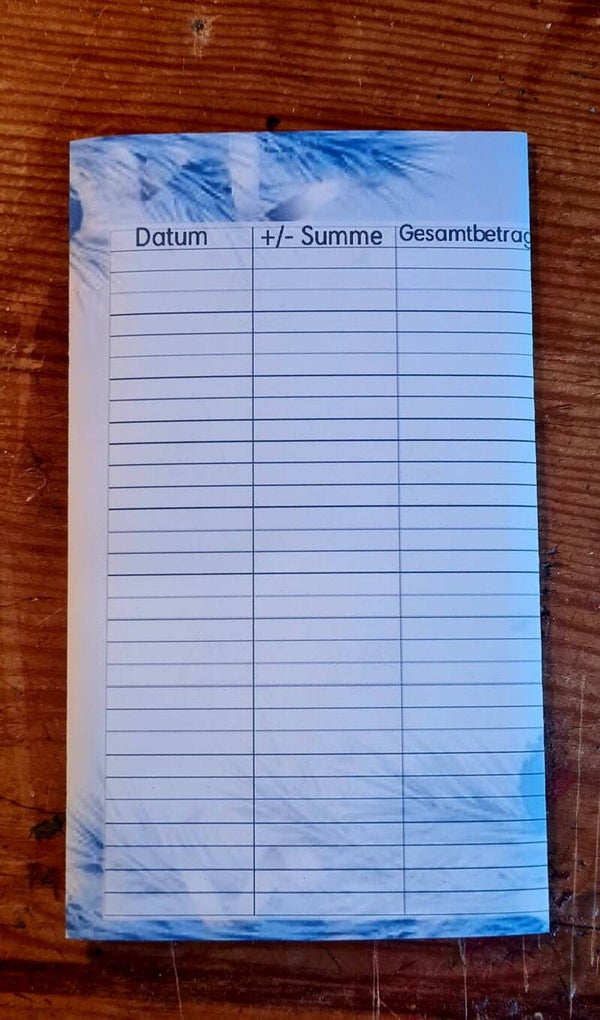 Datum +/- Summe Gesamtbetrag